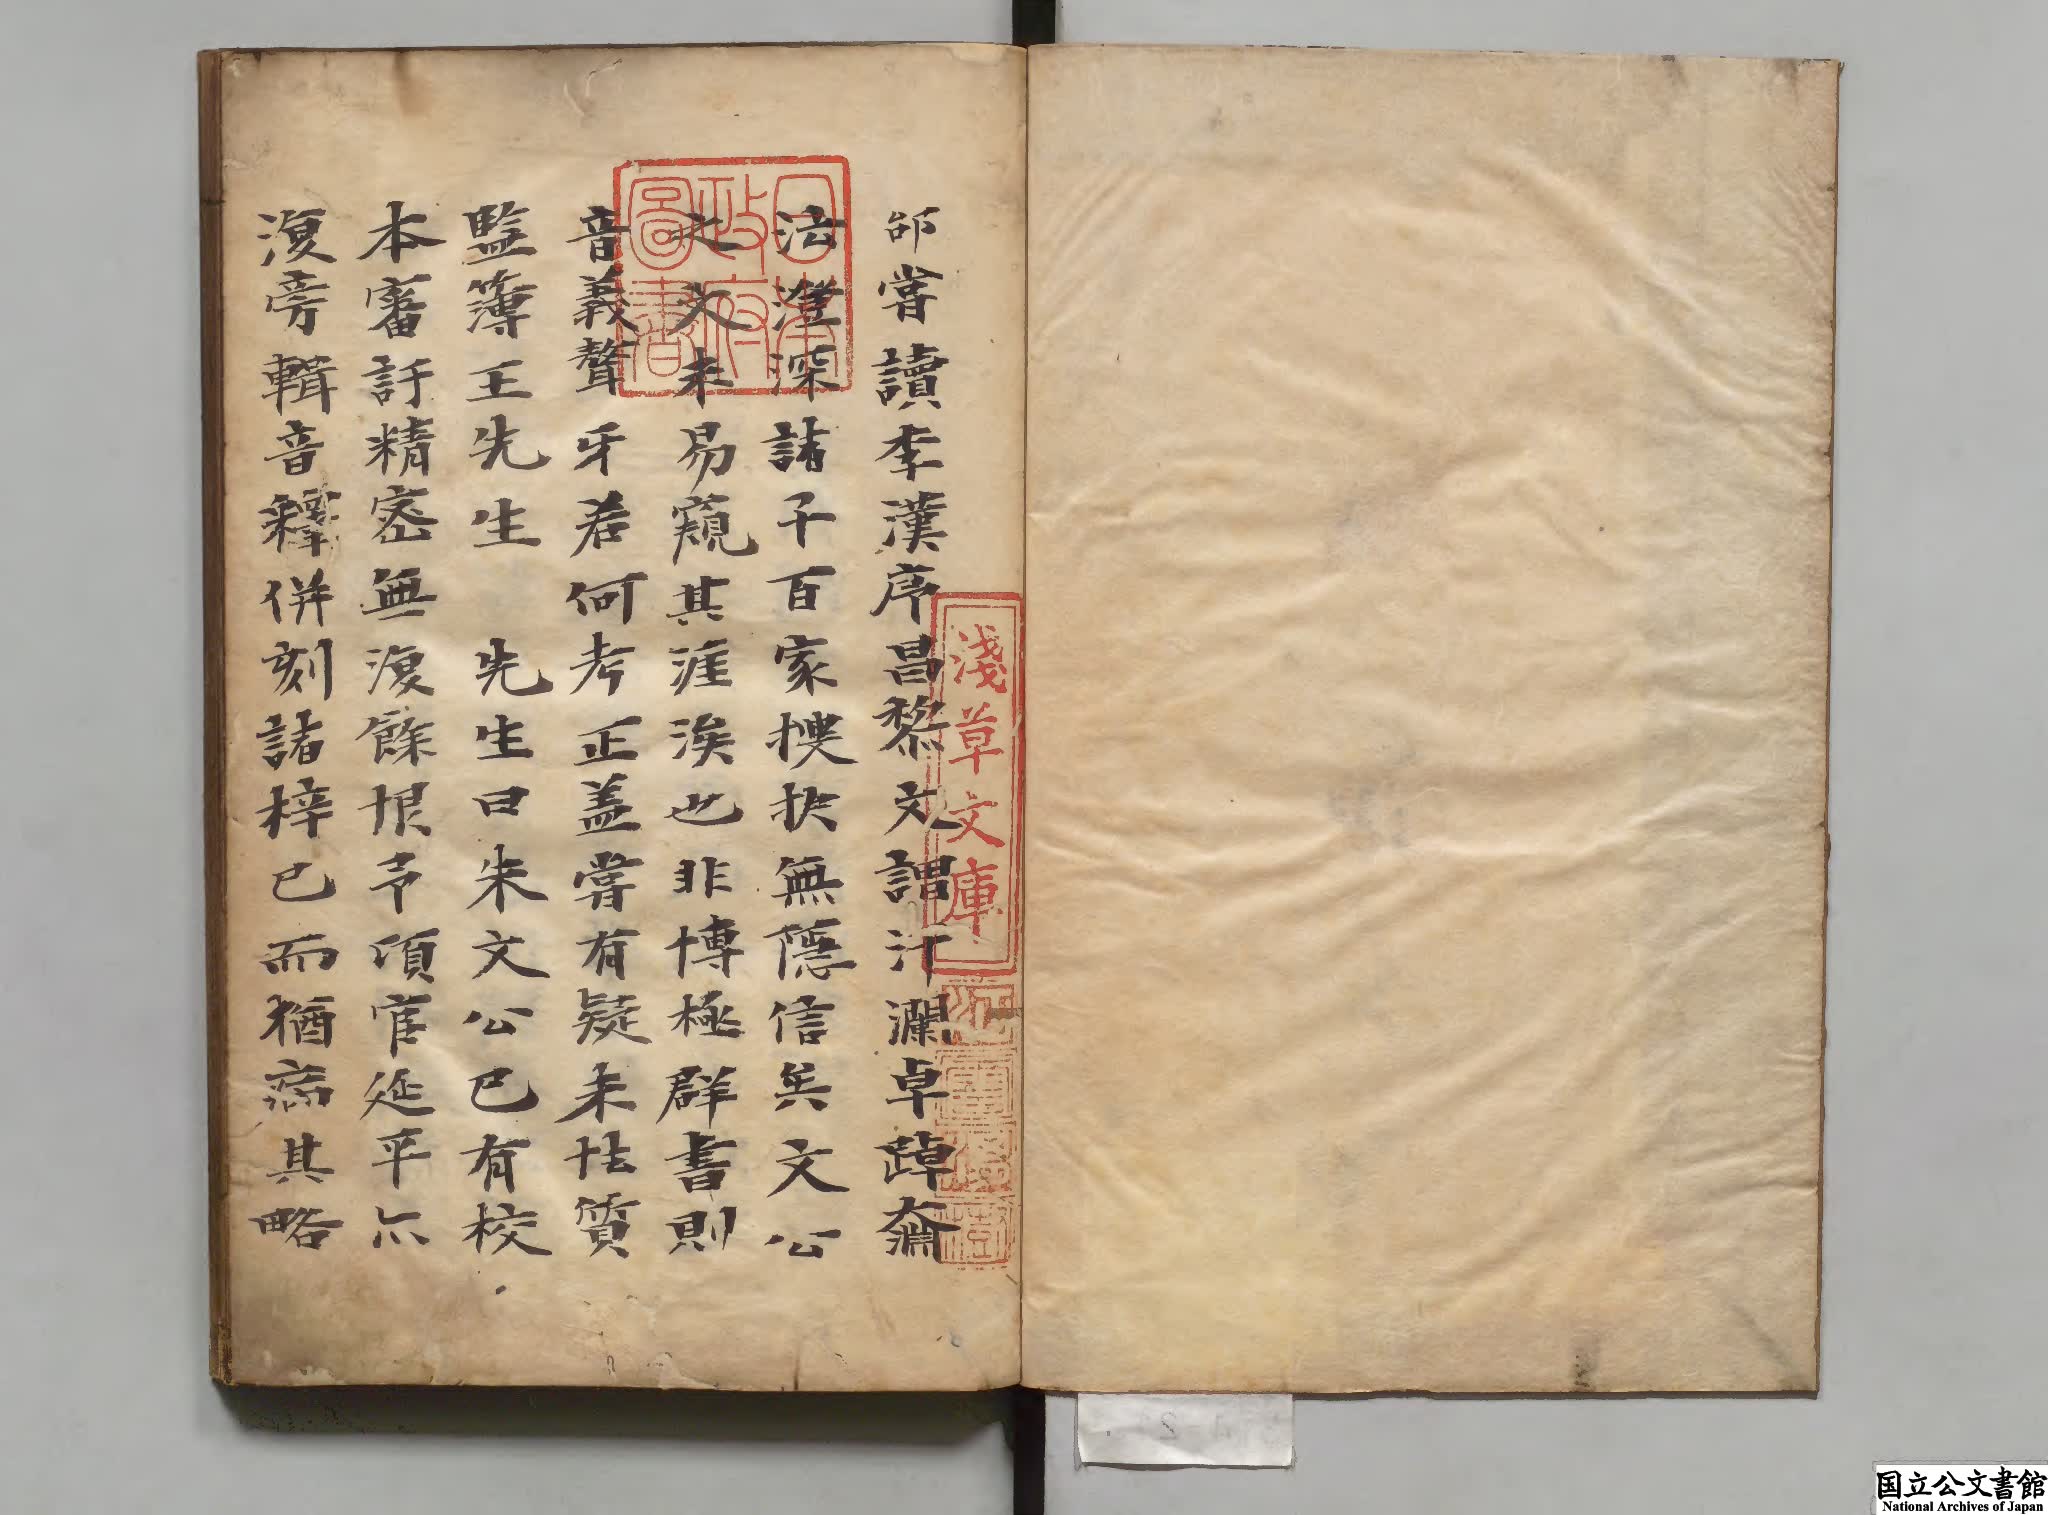 卲嘗讀李漢序昌黎文謂汗瀾卓踔奫
泫澄深諸子百家搜抉無隱信矣文公
之文未易窺其涯涘也非博極群書則
音義聱牙若何考正盖嘗有疑未怯質
監簿王先生 先生曰朱文公已有校
本審訂精密無復餘恨予頃官延平六
復旁輯音釋併刻諸梓已而猶病其略
日本政府圖書
淺草文庫
国立公文書館
National Archives of Japan